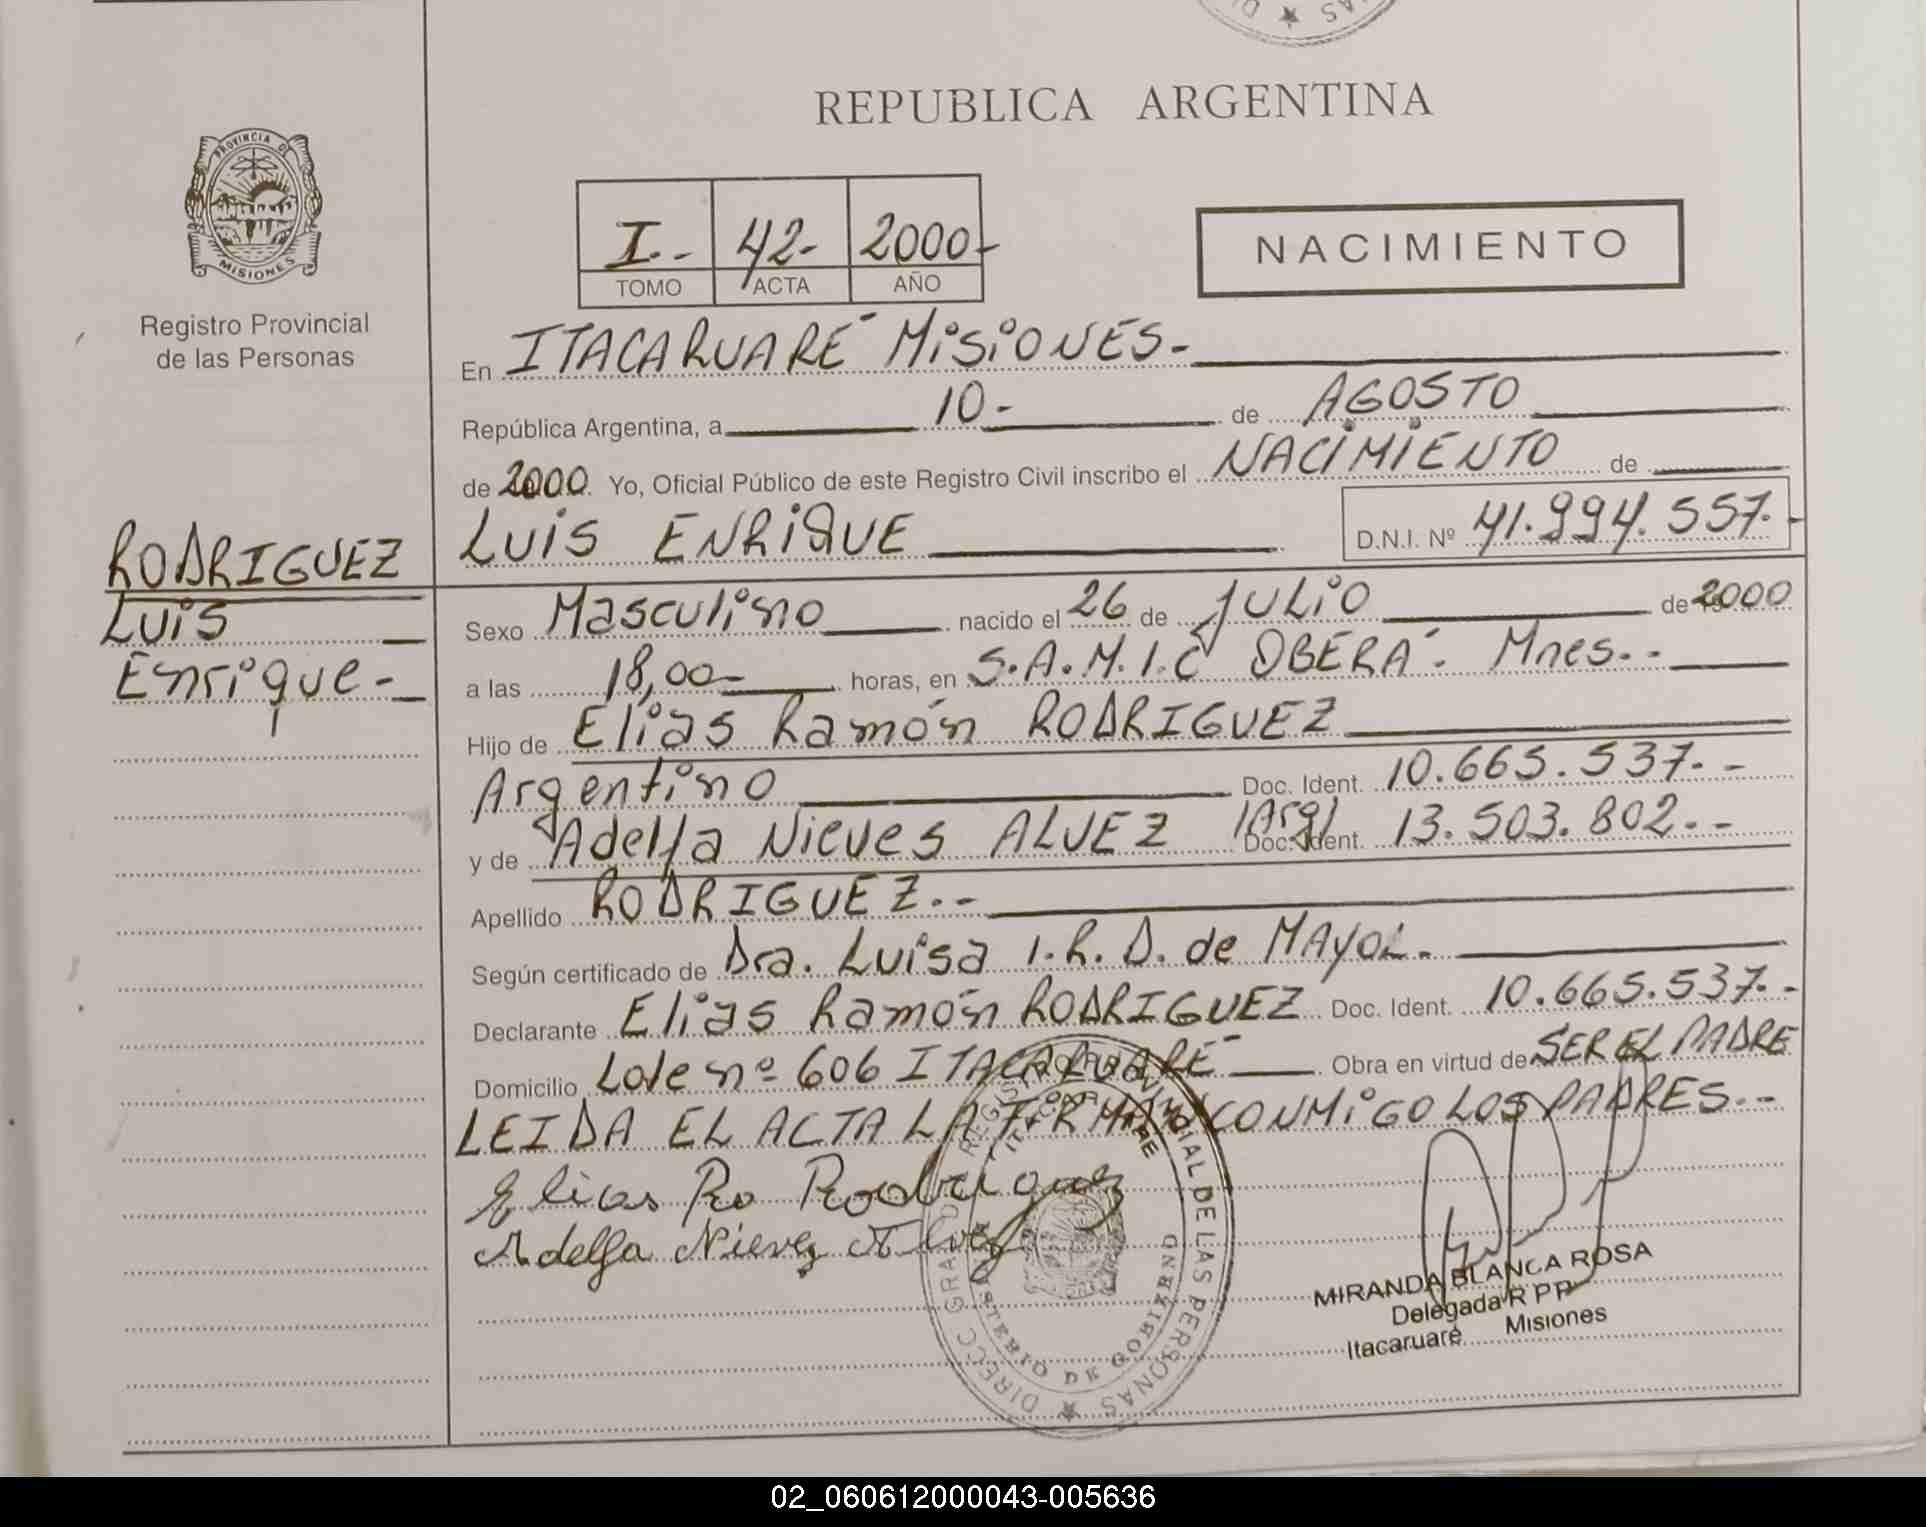 REPUBLICA ARGENTINA
PROVINCIA DE
MISIONES
Registro Provincial
de las Personas
I.- 42- 2000-
TOMO ACTA AÑO
NACIMIENTO
En ITACARUARÉ MiSiONES-
República Argentina, a 10- de AGOSTO
de 2000. Yo, Oficial Público de este Registro Civil inscribo el NACIMIENTO de
LUIS ENRIQUE D.N.I. Nº 41.994.557.-
RODRIGUEZ
LUIS
Enrique-
Sexo Masculino nacido el 26 de JULIO de 2000
a las 18,00- horas, en S.A.M.I.C OBERÁ. Mnes.-
Hijo de Elias Ramón RODRIGUEZ
Argentino Doc. Ident. 10.665.537.-
y de Adelfa Nieves ALVEZ (Arg) Doc. Ident. 13.503.802.-
Apellido RODRIGUEZ.-
Según certificado de Dra. Luisa I.R.D. de MAYOL.
Declarante Elias Ramón RODRIGUEZ Doc. Ident. 10.665.537.-
Domicilio Lote nº 606 ITACARUARÉ Obra en virtud de SER EL PADRE
LEIDA EL ACTA LA FIRMAN CONMIGO LOS PADRES.-
Elias Ro Rodriguez
Adelfa Nievez Alvez
DIRECC GRAL DEL REGISTRO PROVINCIAL DE LAS PERSONAS
MINISTERIO DE GOBIERNO
MIRANDA BLANCA ROSA
Delegada R P P
Itacaruaré Misiones
02_060612000043-005636